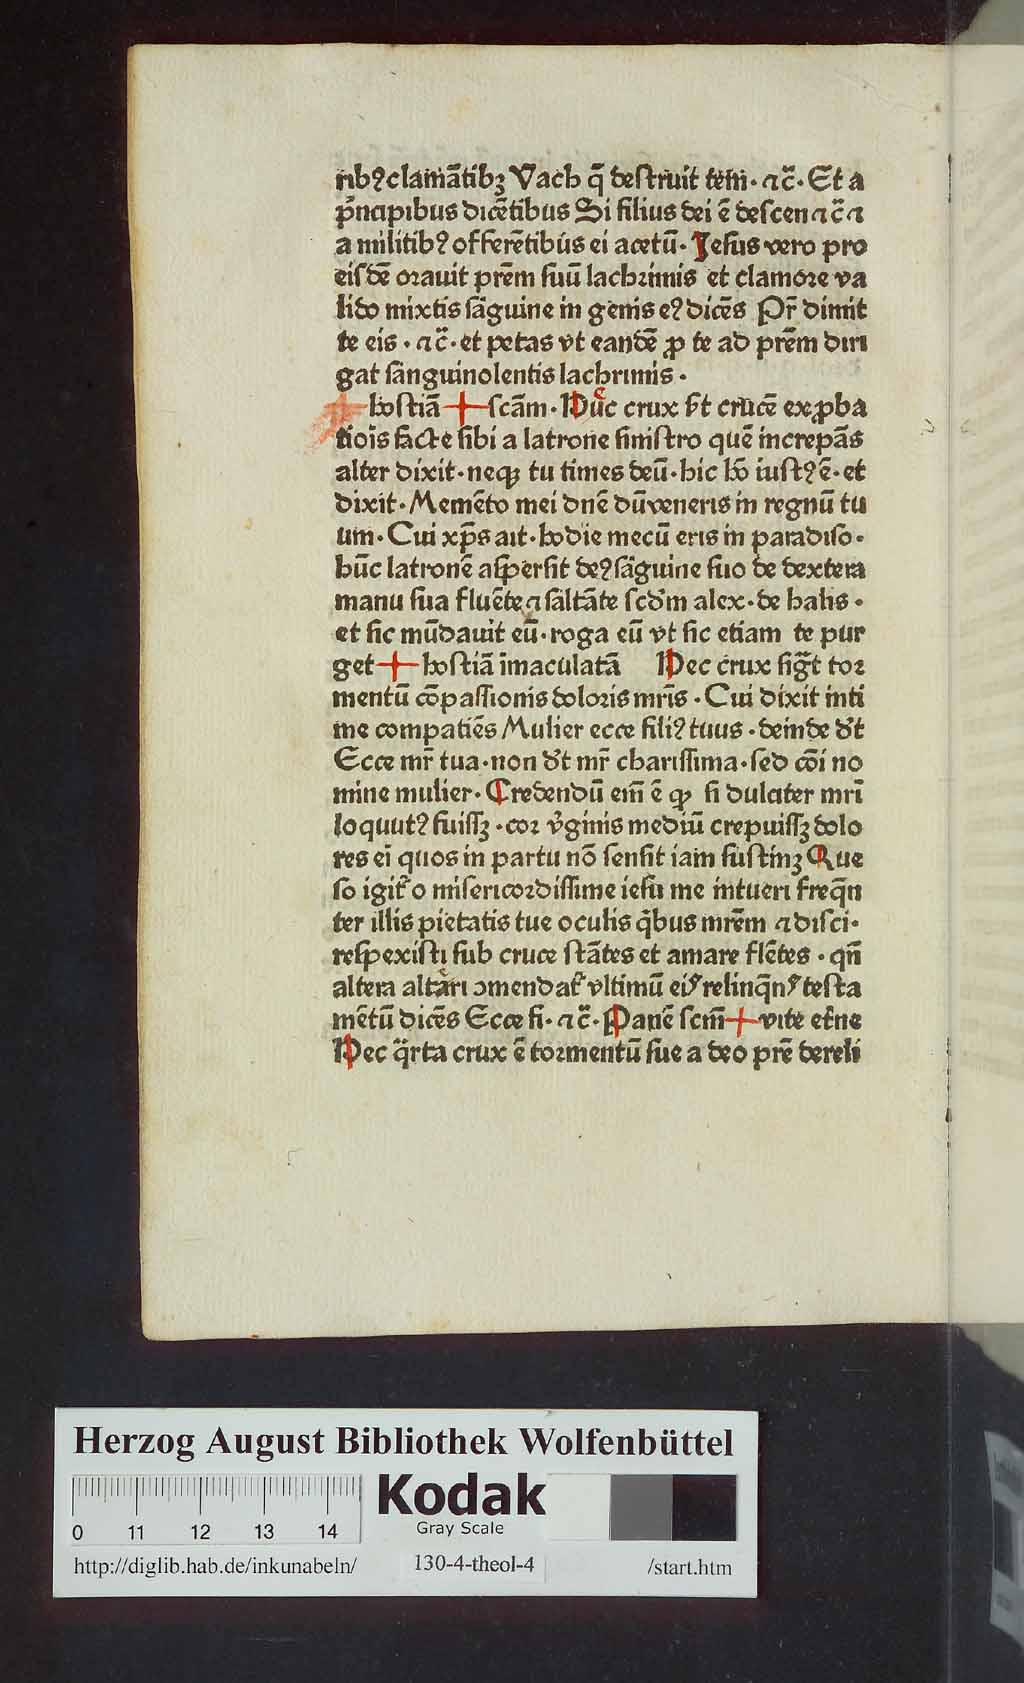 ribꝰ clamãtibꝫ Vach q̃ destruit tem̃· ⁊c̃· Et a
pͥncipibus dicẽtibus Si filius dei ẽ descen ⁊c̃ ⁊
a militibꝰ offerẽtibus ei acetũ· Jesus vero pro
eisdẽ orauit prẽm suũ lachrimis et clamore va
lido mixtis sãguine in genis eꝰ dicẽs Pr̃ dimit
te eis· ⁊c̃· et petas vt eandẽ ꝓ te ad prẽm diri
gat sanguinolentis lachrimis·
hostiã + scãm· Hũc crux hͦt crucẽ exꝓba
tiois facte sibi a latrone sinistro quẽ increpãs
alter dixit· neqꝫ tu times deũ· hic hõ iustꝰ ẽ· et
dixit· Memẽto mei dñe dũ veneris in regnũ tu
um· Cui xp̃s ait· hodie mecũ eris in paradiso·
hũc latronẽ aspersit deꝰ sãguine suo de dextera
manu sua fluẽte ⁊ saltãte scd̃m alex· de halis·
et sic mũdauit eũ· roga eũ vt sic etiam te pur
get + hostiã imaculatã Hec crux sig̃t tor
mentũ cõpassionis doloris mr̃is· Cui dixit inti
me compatiẽs Mulier ecce filiꝰ tuus· deinde d̃t
Ecce mr̃ tua· non d̃t mr̃ charissima· sed cõi no
mine mulier· Credendũ em̃ ẽ qꝫ si dulciter mr̃i
loquutꝰ fuissꝫ· cor v̓ginis mediũ crepuissꝫ dolo
res ei quos in partu nõ sensit iam sustinꝫ Que
so igit᷑ o misericordissime iesu me intueri freq̃n
ter illis pietatis tue oculis q̃bus mrẽm ⁊ disci·
respexisti sub cruce stãtes et amare flẽtes· qñ
altera altãri ꝯmendat᷑ vltimũ eiꝰ relinq̃nꝰ testa
mẽtũ dicẽs Ecce fi· ⁊c̃· Panẽ scm̃ + vite et̓ne
Hec q̃rta crux ẽ tormentũ sue a deo prẽ dereli
Herzog August Bibliothek Wolfenbüttel
0 11 12 13 14
Kodak
Gray Scale
http://diglib.hab.de/inkunabeln/ 130-4-theol-4 /start.htm